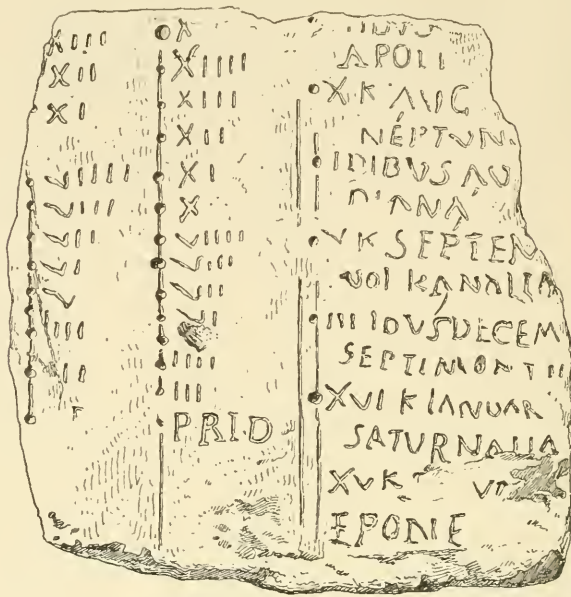 XIII
XII
XI
VIIII
VIII
VII
VI
V
IIII
III
X
XIIII
XIII
XII
XI
X
VIIII
VIII
VII
VI
IIII
III
PRID
APOLI
XK AUG
NEPTUN
IDIBUS AU
DIANA
VK SEPTEN
VOLKANALIA
IIII IDUS DECEM
SEPTIMONTI
XVI K IANUAR
SATURNALIA
XVK
EPONE